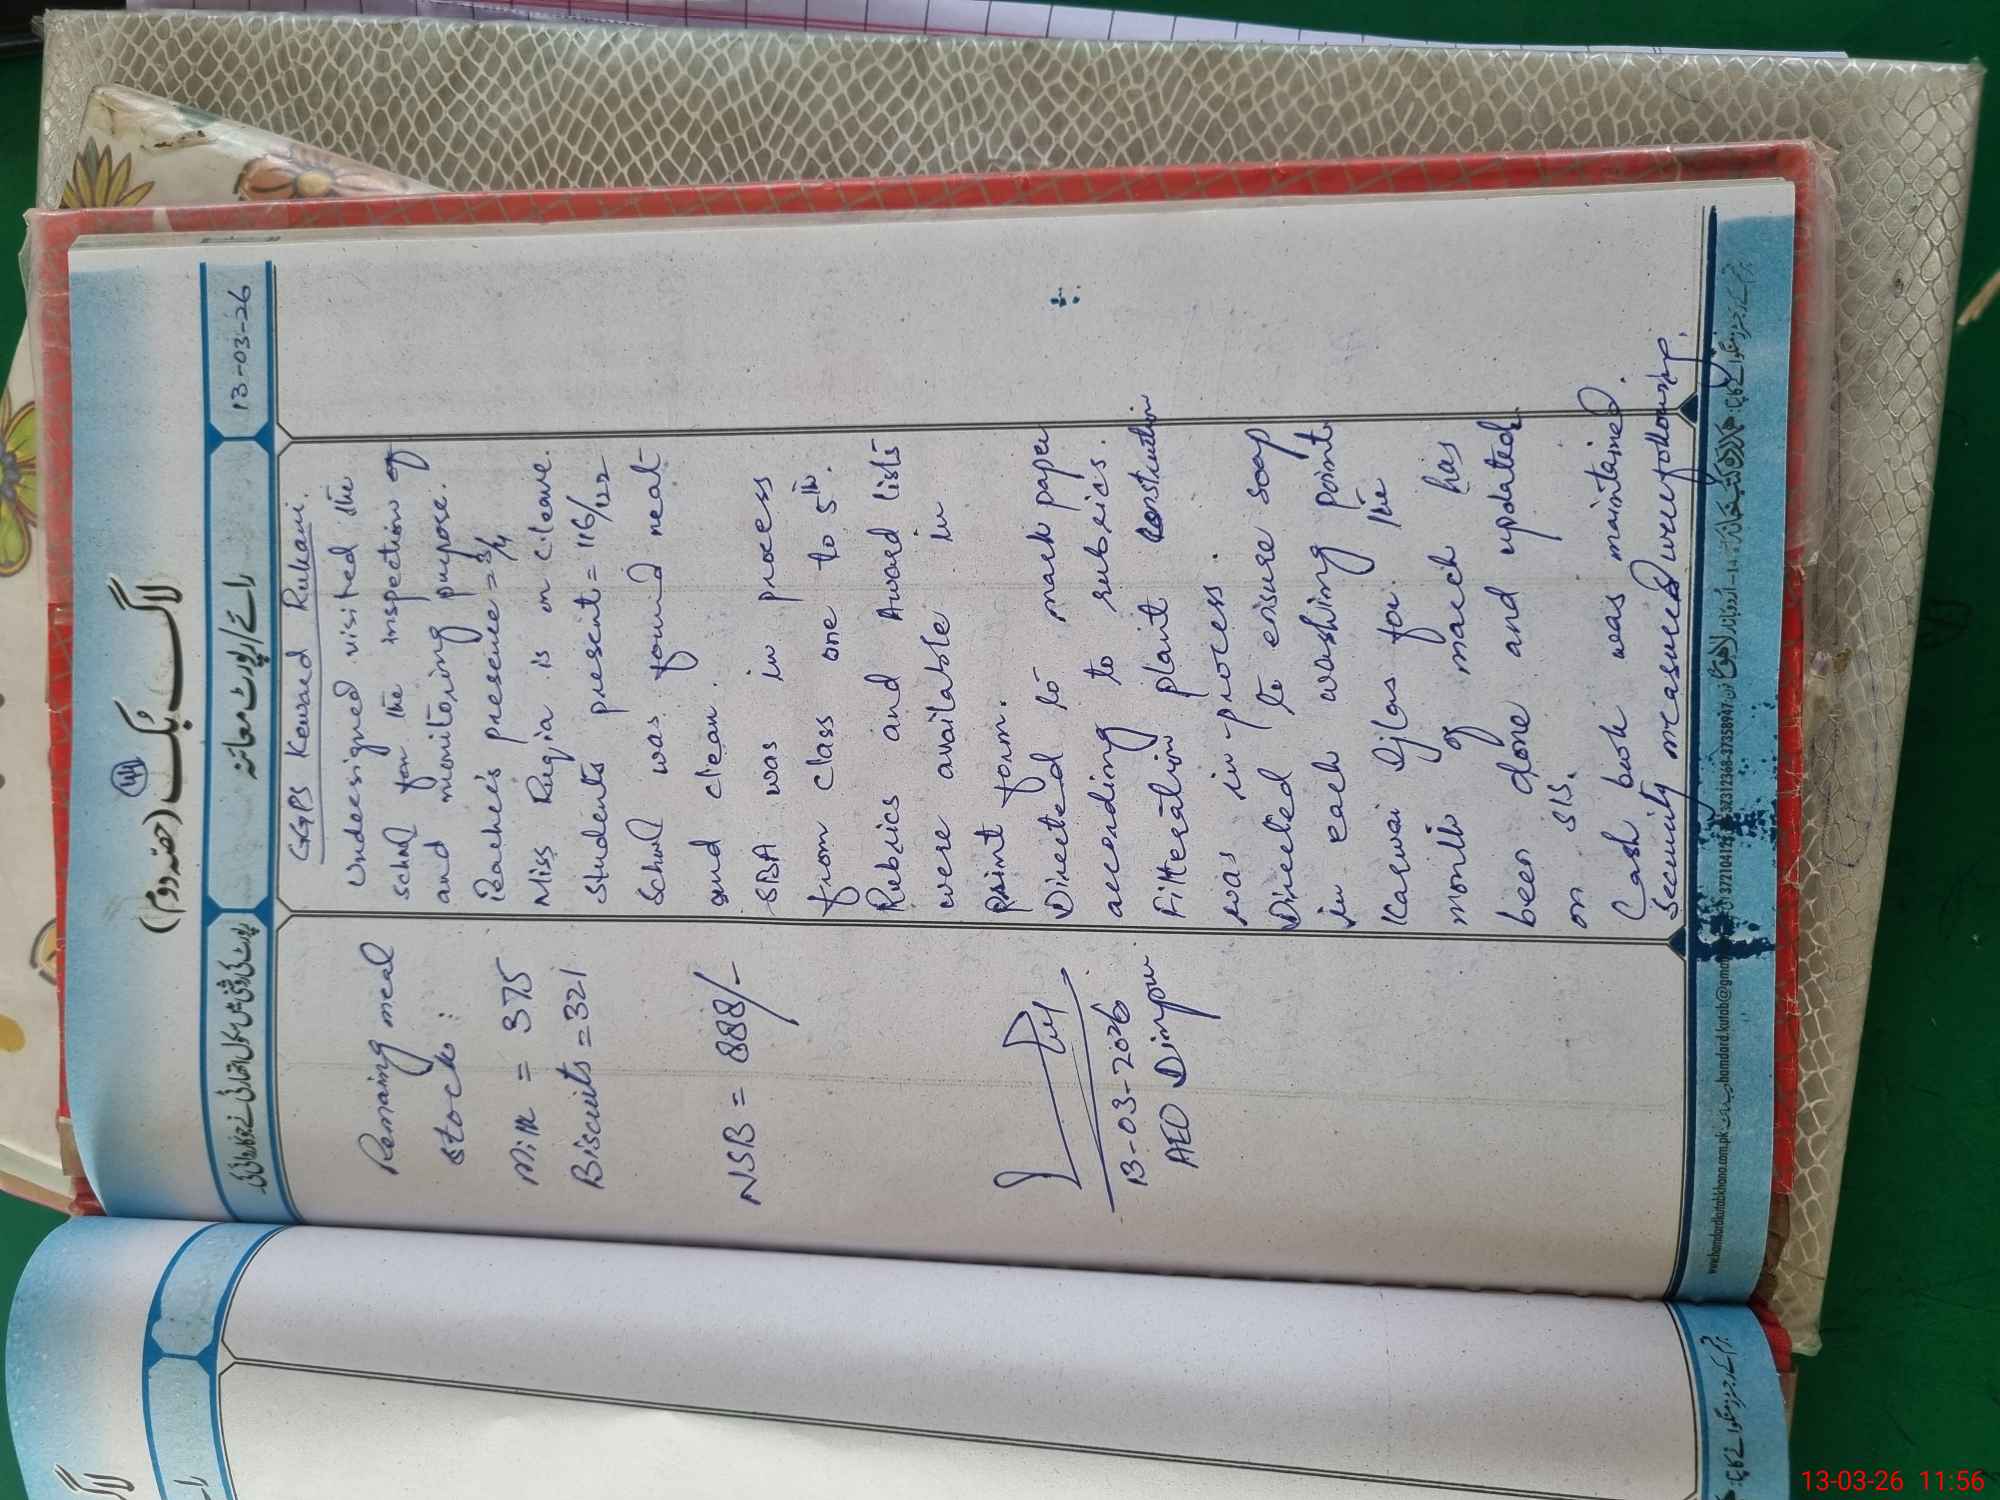 لاگ بُک (حصّہ دوم)
13-03-26
رائے / رپورٹ معائنہ
GGPS Ruhani.
Undersigned visited the
school for the inspection of
and monitoring purpose.
Teachers presence = 3/4
Miss Ruqia is on C.leave.
Students present = 116/122
School was found neat
and clean.
SBA was in process
from class one to 5th.
Rubrics and Award lists
were available in
print form.
Directed to mark paper
according to rubrics.
Filteration plant construction
was in-process.
Directed to ensure soap
in each washing point
Karwai Ijlas for the
month of march has
been done and updated
on SIS.
Cash book was maintained.
Security measures were following.
Remaing meal
stock:
Milk = 375
Biscuits = 321
NSB = 888/-
13-03-2026
AEO Dinpur
www.hamdardkutabkhana.com.pk
13-03-26 11:56